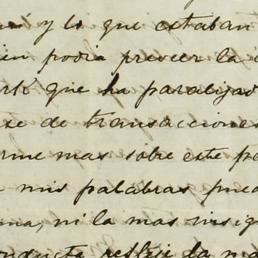 y lo que estaban
podia preveer la
que ha paralizado
se de transacciones
rme mas sobre este
mis palabras pue
na, ni la mas insig
onducta refleje la m